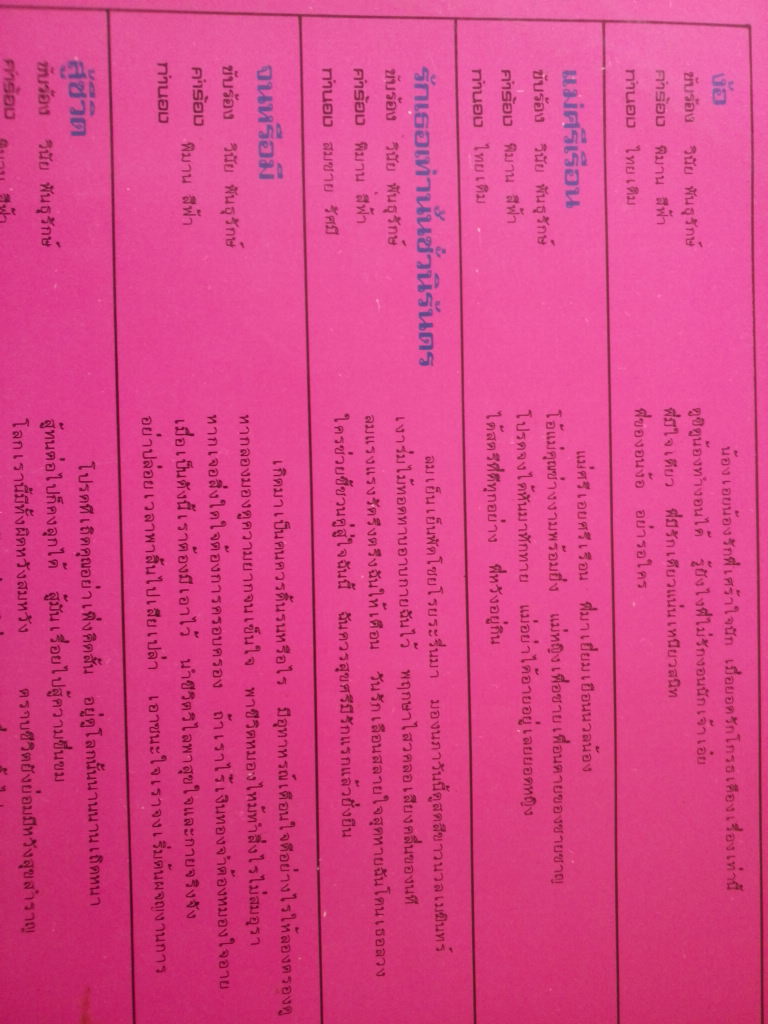 ง้อ
ขับร้อง วินัย พันธุรักษ์
คำร้อง พิมาน สีฟ้า
ทำนอง ไทยเดิม
น้องเอยน้องรักพี่เศร้าใจนัก เมื่อยอดรักโกรธเคืองเรื่องเท่านี้
ดูซิดูน้องทำงอนได้ รู้ยังไงพี่ไม่รักงอนนักเจ้าเอย
พี่มีใจเดียว พี่มีรักเดียวแน่นเหนียวสนิท
พี่ของอนง้อ อย่ารอใคร
แม่ศรีเรือน
ขับร้อง วินัย พันธุรักษ์
คำร้อง พิมาน สีฟ้า
ทำนอง ไทยเดิม
แม่ศรีเอยศรีเรือน พี่มาเยี่ยมเยือนนวลน้อง
โอ้แม่คุณช่างงามพร้อมยิ่ง แม่หญิงเพื่อชายเพื่อนตายของชายชาญ
โปรดจงได้หันมาทักทาย แม่อย่าได้อายอยู่เลยยอดหญิง
ได้สตรีที่ทุกอย่าง พี่หวังอยู่กิน
รักเธอเท่านั้นชั่วนิรันดร
ขับร้อง วินัย พันธุรักษ์
คำร้อง พิมาน สีฟ้า
ทำนอง สมชาย รัศมี
ลมเย็นเย็นพัดโชยโรยระรื่นมา มองนภาวันนี้ดูสดสีขาวนวลเมฆินทร์
เงาร่มไม้ทอดทาบอาบกายฉันไว้ พฤกษาไสวคลอเสียงคลื่นของนที
ลมแรงแรงรัดรึงตรึงฉันให้เตือน วันรักเลือนสลายใจสุดหายฉันโดนเธอลวง
ใครช่วยชี้ชวนคู่สู่ใจฉันนี้ ฉันควรสุขศรีมีรักแรกแล้วยั่งยืน
จนหรือมี
ขับร้อง วินัย พันธุรักษ์
คำร้อง พิมาน สีฟ้า
ทำนอง
เกิดมาเป็นคนควรดิ้นรนหรือไร มีอุทาหรณ์เตือนใจดีอย่างไรให้ลองตรองดู
หากลองมองดูความยากจนเข็ญใจ พาชีวิตหมองไหม้ทำสิ่งไรไม่สมอุรา
หากเจอสิ่งใดใจต้องการครอบครอง ถ้าเราไร้เงินทองจำต้องหมองใจอาย
เมื่อเป็นดังนี้เราต้องมีเอาไว้ นำชีวิตวิไลพาสุขใจและกายจริงจัง
อย่าปล่อยเวลาพาสิ้นไปเสียเปล่า เอาชนะใจเราจงเริ่มต้นผจญงานการ
สู้ชีวิต
ขับร้อง วินัย พันธุรักษ์
คำร้อง พิมาน สีฟ้า
โปรดทีเถิดคุณอย่าเพิ่งคิดสั้น อยู่คู่โลกนั้นนานนานเถิดหนา
สู้ทนต่อไปก็คงลุกได้ สู้มันเรื่อยไปสู้ความขื่นขม
โลกเรานี้มีทั้งผิดหวังสมหวัง ตราบชีวิตยังย่อมมีหวังสุขสำราญ